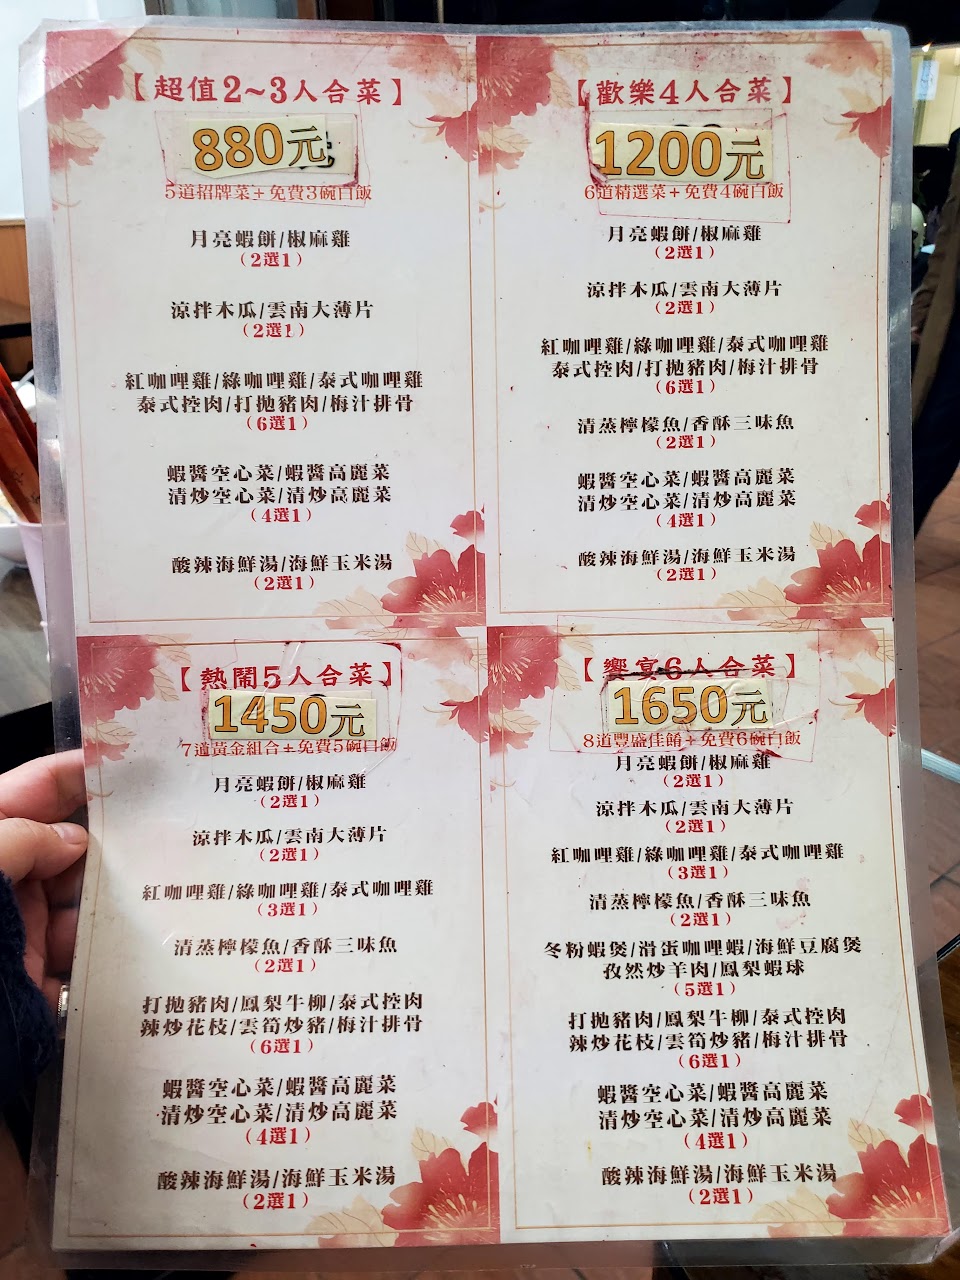 【超值2~3人合菜】
880元
5道招牌菜+免費3碗白飯
月亮蝦餅/椒麻雞
(2選1)
涼拌木瓜/雲南大薄片
(2選1)
紅咖哩雞/綠咖哩雞/泰式咖哩雞
泰式控肉/打拋豬肉/梅汁排骨
(6選1)
蝦醬空心菜/蝦醬高麗菜
清炒空心菜/清炒高麗菜
(4選1)
酸辣海鮮湯/海鮮玉米湯
(2選1)
【歡樂4人合菜】
1200元
6道精選菜+免費4碗白飯
月亮蝦餅/椒麻雞
(2選1)
涼拌木瓜/雲南大薄片
(2選1)
紅咖哩雞/綠咖哩雞/泰式咖哩雞
泰式控肉/打拋豬肉/梅汁排骨
(6選1)
清蒸檸檬魚/香酥三味魚
(2選1)
蝦醬空心菜/蝦醬高麗菜
清炒空心菜/清炒高麗菜
(4選1)
酸辣海鮮湯/海鮮玉米湯
(2選1)
【熱鬧5人合菜】
1450元
7道黃金組合+免費5碗白飯
月亮蝦餅/椒麻雞
(2選1)
涼拌木瓜/雲南大薄片
(2選1)
紅咖哩雞/綠咖哩雞/泰式咖哩雞
(3選1)
清蒸檸檬魚/香酥三味魚
(2選1)
打拋豬肉/鳳梨牛柳/泰式控肉
辣炒花枝/雲筍炒豬/梅汁排骨
(6選1)
蝦醬空心菜/蝦醬高麗菜
清炒空心菜/清炒高麗菜
(4選1)
酸辣海鮮湯/海鮮玉米湯
(2選1)
【饗宴6人合菜】
1650元
8道豐盛佳餚+免費6碗白飯
月亮蝦餅/椒麻雞
(2選1)
涼拌木瓜/雲南大薄片
(2選1)
紅咖哩雞/綠咖哩雞/泰式咖哩雞
(3選1)
清蒸檸檬魚/香酥三味魚
(2選1)
冬粉蝦煲/滑蛋咖哩蝦/海鮮豆腐煲
孜然炒羊肉/鳳梨蝦球
(5選1)
打拋豬肉/鳳梨牛柳/泰式控肉
辣炒花枝/雲筍炒豬/梅汁排骨
(6選1)
蝦醬空心菜/蝦醬高麗菜
清炒空心菜/清炒高麗菜
(4選1)
酸辣海鮮湯/海鮮玉米湯
(2選1)